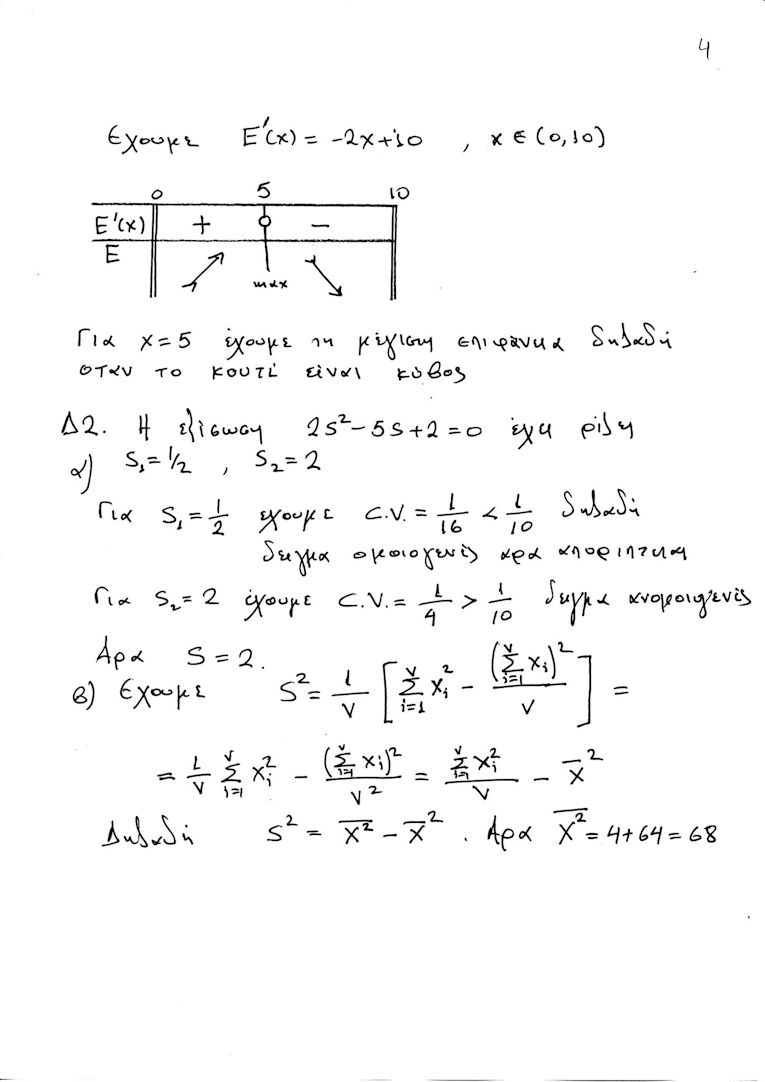 4
Εχουμε E'(x) = -2x+10 , x ∈ (0,10)
0 5 10
E'(x) + 0 −
E ↗ max ↘
Για x=5 έχουμε τη μέγιστη επιφάνεια δηλαδή
οταν το κουτί είναι κύβος
Δ2. Η εξίσωση 2s²-5s+2=0 έχει ρίζες
α) S₁=1/2 , S₂=2
Για S₁=1/2 έχουμε C.V. = 1/16 < 1/10 δηλαδή
δειγμα ομοιογενές αρα απορριπτεται
Για S₂=2 έχουμε C.V. = 1/4 > 1/10 δειγμα ανομοιογενές
Αρα S=2.
β) Εχουμε S² = 1/ν [ Σᵢ₌₁^ν xᵢ² - (Σᵢ₌₁^ν xᵢ)²/ν ] =
= 1/ν Σᵢ₌₁^ν xᵢ² - (Σᵢ₌₁^ν xᵢ)²/ν² = Σᵢ₌₁^ν xᵢ²/ν - x̅²
Δηλαδή S² = \overline{x²} - x̅² . Αρα \overline{x²} = 4+64=68